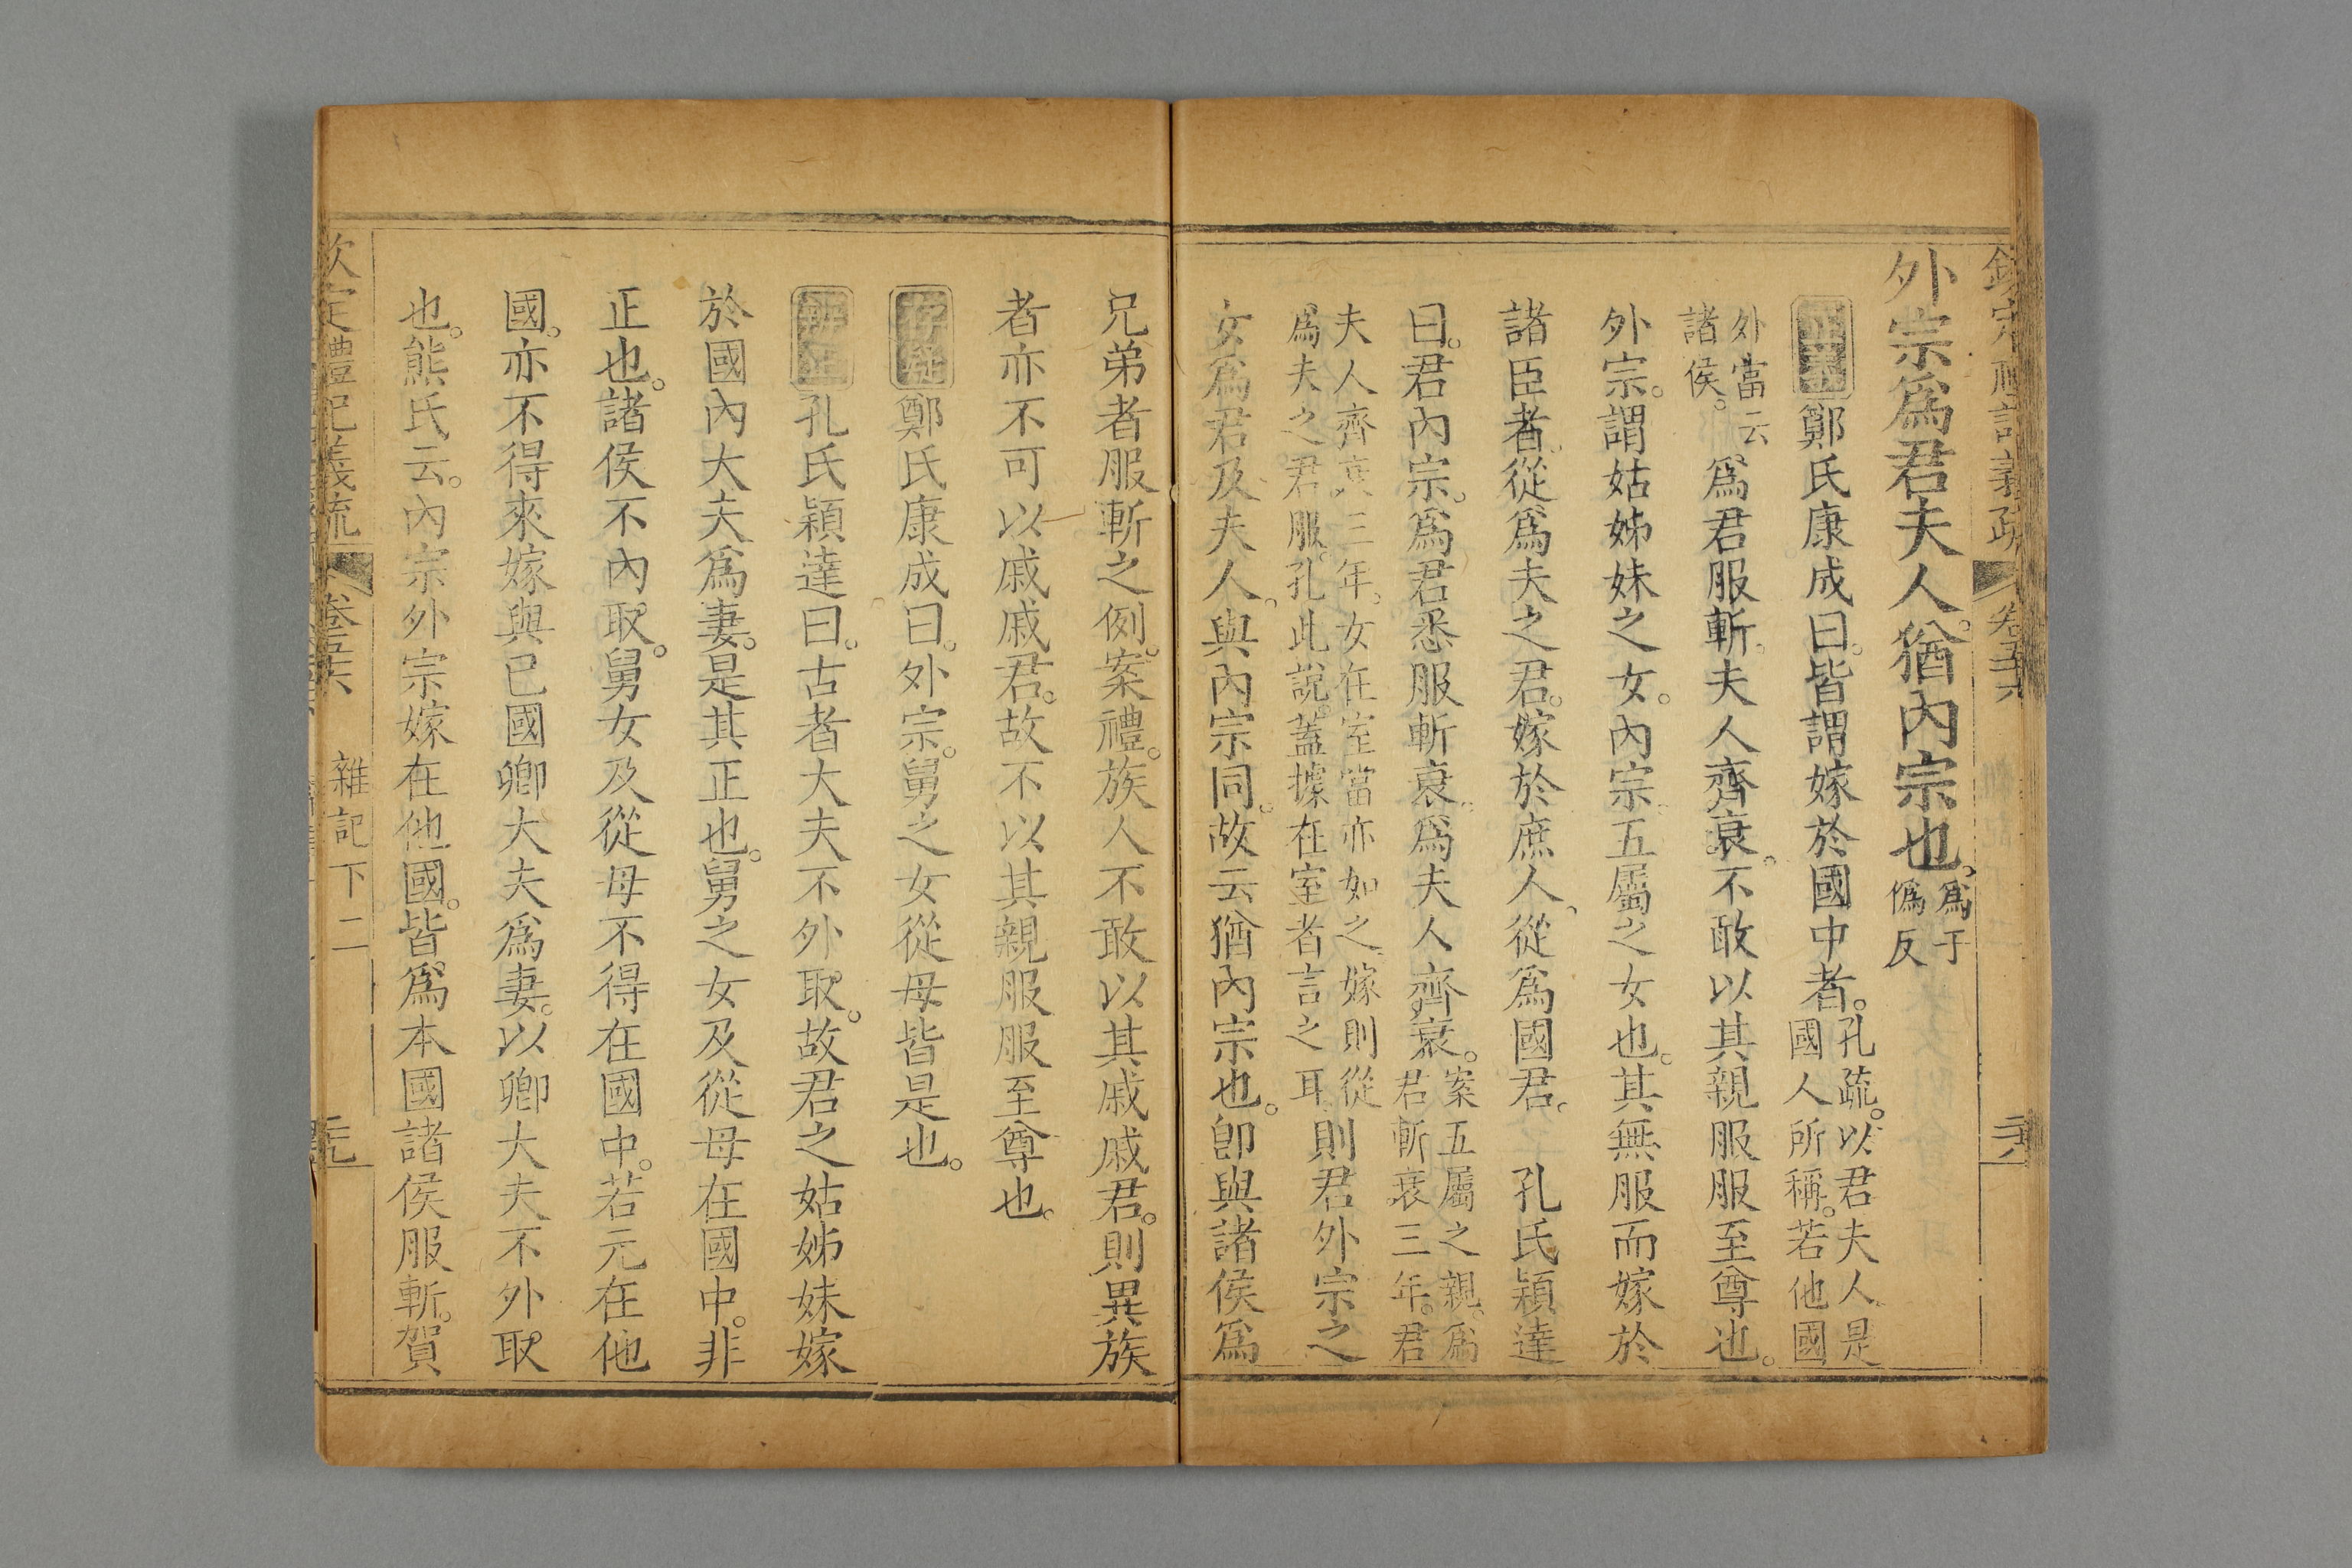 欽定禮記義疏 卷五十六 二六
外宗爲君夫人。猶內宗也。爲于僞反
正義 鄭氏康成曰。皆謂嫁於國中者。孔疏。以君夫人。是國人所稱。若他國
外當云諸侯。爲君服斬。夫人齊衰。不敢以其親服服至尊也。
外宗。謂姑姊妹之女。內宗。五屬之女也。其無服而嫁於
諸臣者。從爲夫之君。嫁於庶人。從爲國君。 孔氏穎達
曰。君內宗。爲君悉服斬衰。爲夫人齊衰。案五屬之親。爲君斬衰三年。君
夫人齊衰三年。女在室當亦如之。嫁則從爲夫之君服。孔此說。蓋據在室者言之耳則君外宗之
女爲君及夫人。與內宗同。故云猶內宗也。卽與諸侯爲
兄弟者服斬之例。案禮。族人不敢以其戚戚君。則異族
者亦不可以戚戚君。故不以其親服服至尊也。
存疑 鄭氏康成曰。外宗。舅之女從母皆是也。
辨正 孔氏穎達曰。古者大夫不外取。故君之姑姊妹嫁
於國內大夫爲妻。是其正也。舅之女及從母在國中。非
正也。諸侯不內取。舅女及從母不得在國中。若元在他
國。亦不得來嫁與已國卿大夫爲妻。以卿大夫不外取
也。熊氏云。內宗外宗嫁在他國。皆爲本國諸侯服斬。賀
欽定禮記義疏 卷五十六 雜記下二 元